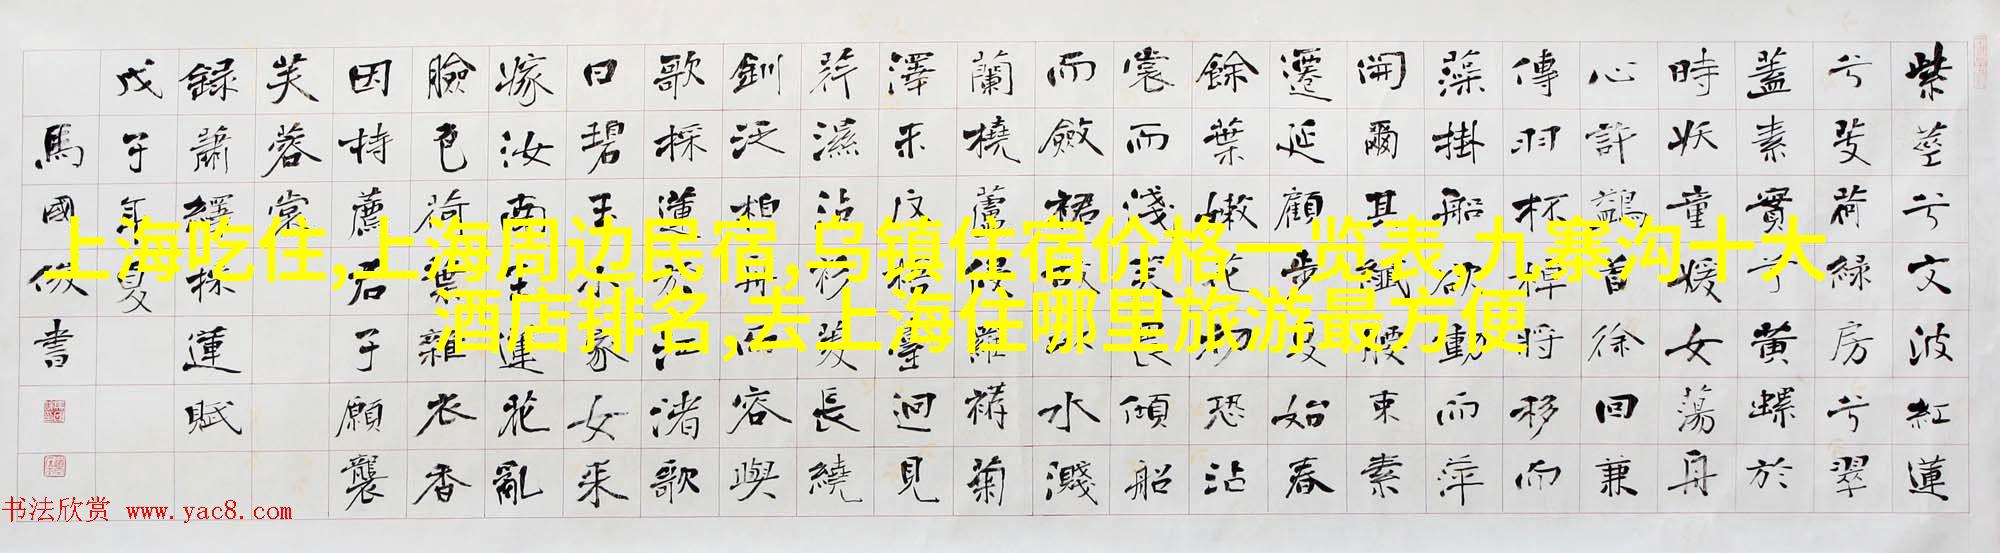 紫莖兮文波紅蓮
兮芰荷綠房兮翠
蓋素實兮黃螺於
時妖童媛女蕩舟
心許鷁首徐回兼
傳羽杯棹將移而
藻掛船欲動而萍
開爾其纖腰束素
遷延顧步夏始春
餘葉嫩花初恐沾
裳而淺笑畏傾船
而斂裾故以水濺
蘭橈蘆侵羅襪菊
澤未反梧臺迥見
荇濕沾衫菱長繞
釧泛柏舟而容與
歌採蓮於江渚歌
曰碧玉小家女来
嫁汝南王蓮花亂
臉色荷葉雜衣香
因持薦君子願襲
芙蓉裳
錄蕭繹採蓮賦
戊子年夏
馬國俊書
上海吃住,上海周边民宿,乌镇住宿价格一览表,九寨沟十大
酒店排名,去上海住哪里旅游最方便
书法欣赏 www.yac8.com